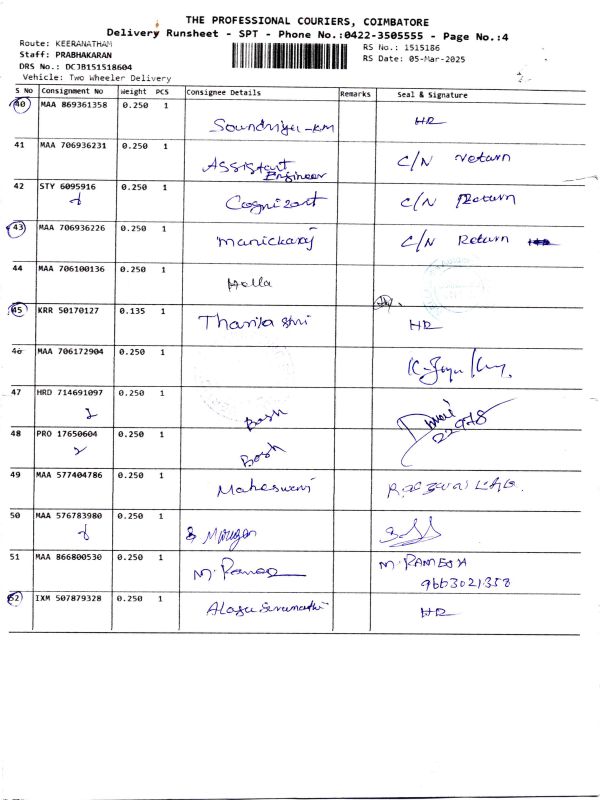 THE PROFESSIONAL COURIERS, COIMBATORE
Delivery Runsheet - SPT - Phone No.:0422-3505555 - Page No.:4
Route: KEERANATHAM
Staff: PRABHAKARAN
DRS No.: DCJB151518604
Vehicle: Two Wheeler Delivery
RS No.: 1515186
RS Date: 05-Mar-2025
S No Consignment No Weight PCS Consignee Details Remarks Seal & Signature
40 MAA 869361358 0.250 1 HR
41 MAA 706936231 0.250 1 Assistant Engineer C/N return
42 STY 6095916 0.250 1 Cognizant C/N Return
43 MAA 706936226 0.250 1 Manickaraj C/N Return
44 MAA 706100136 0.250 1 Hella
45 KRR 50170127 0.135 1 HR
46 MAA 706172904 0.250 1
47 HRD 714691097 0.250 1 Bosh
2
48 PRO 17650604 0.250 1 Bosh
2
49 MAA 577404786 0.250 1 Maheswari
50 MAA 576783980 0.250 1 S Murugan
51 MAA 866800530 0.250 1 M. RAMESH
9663021358
52 IXM 507879328 0.250 1 HR